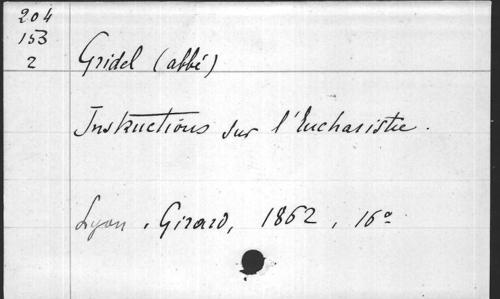 204
153
2
Gridel (abbé)
Instructions sur l'Eucharistie.
Lyon, Girard, 1862, 16º